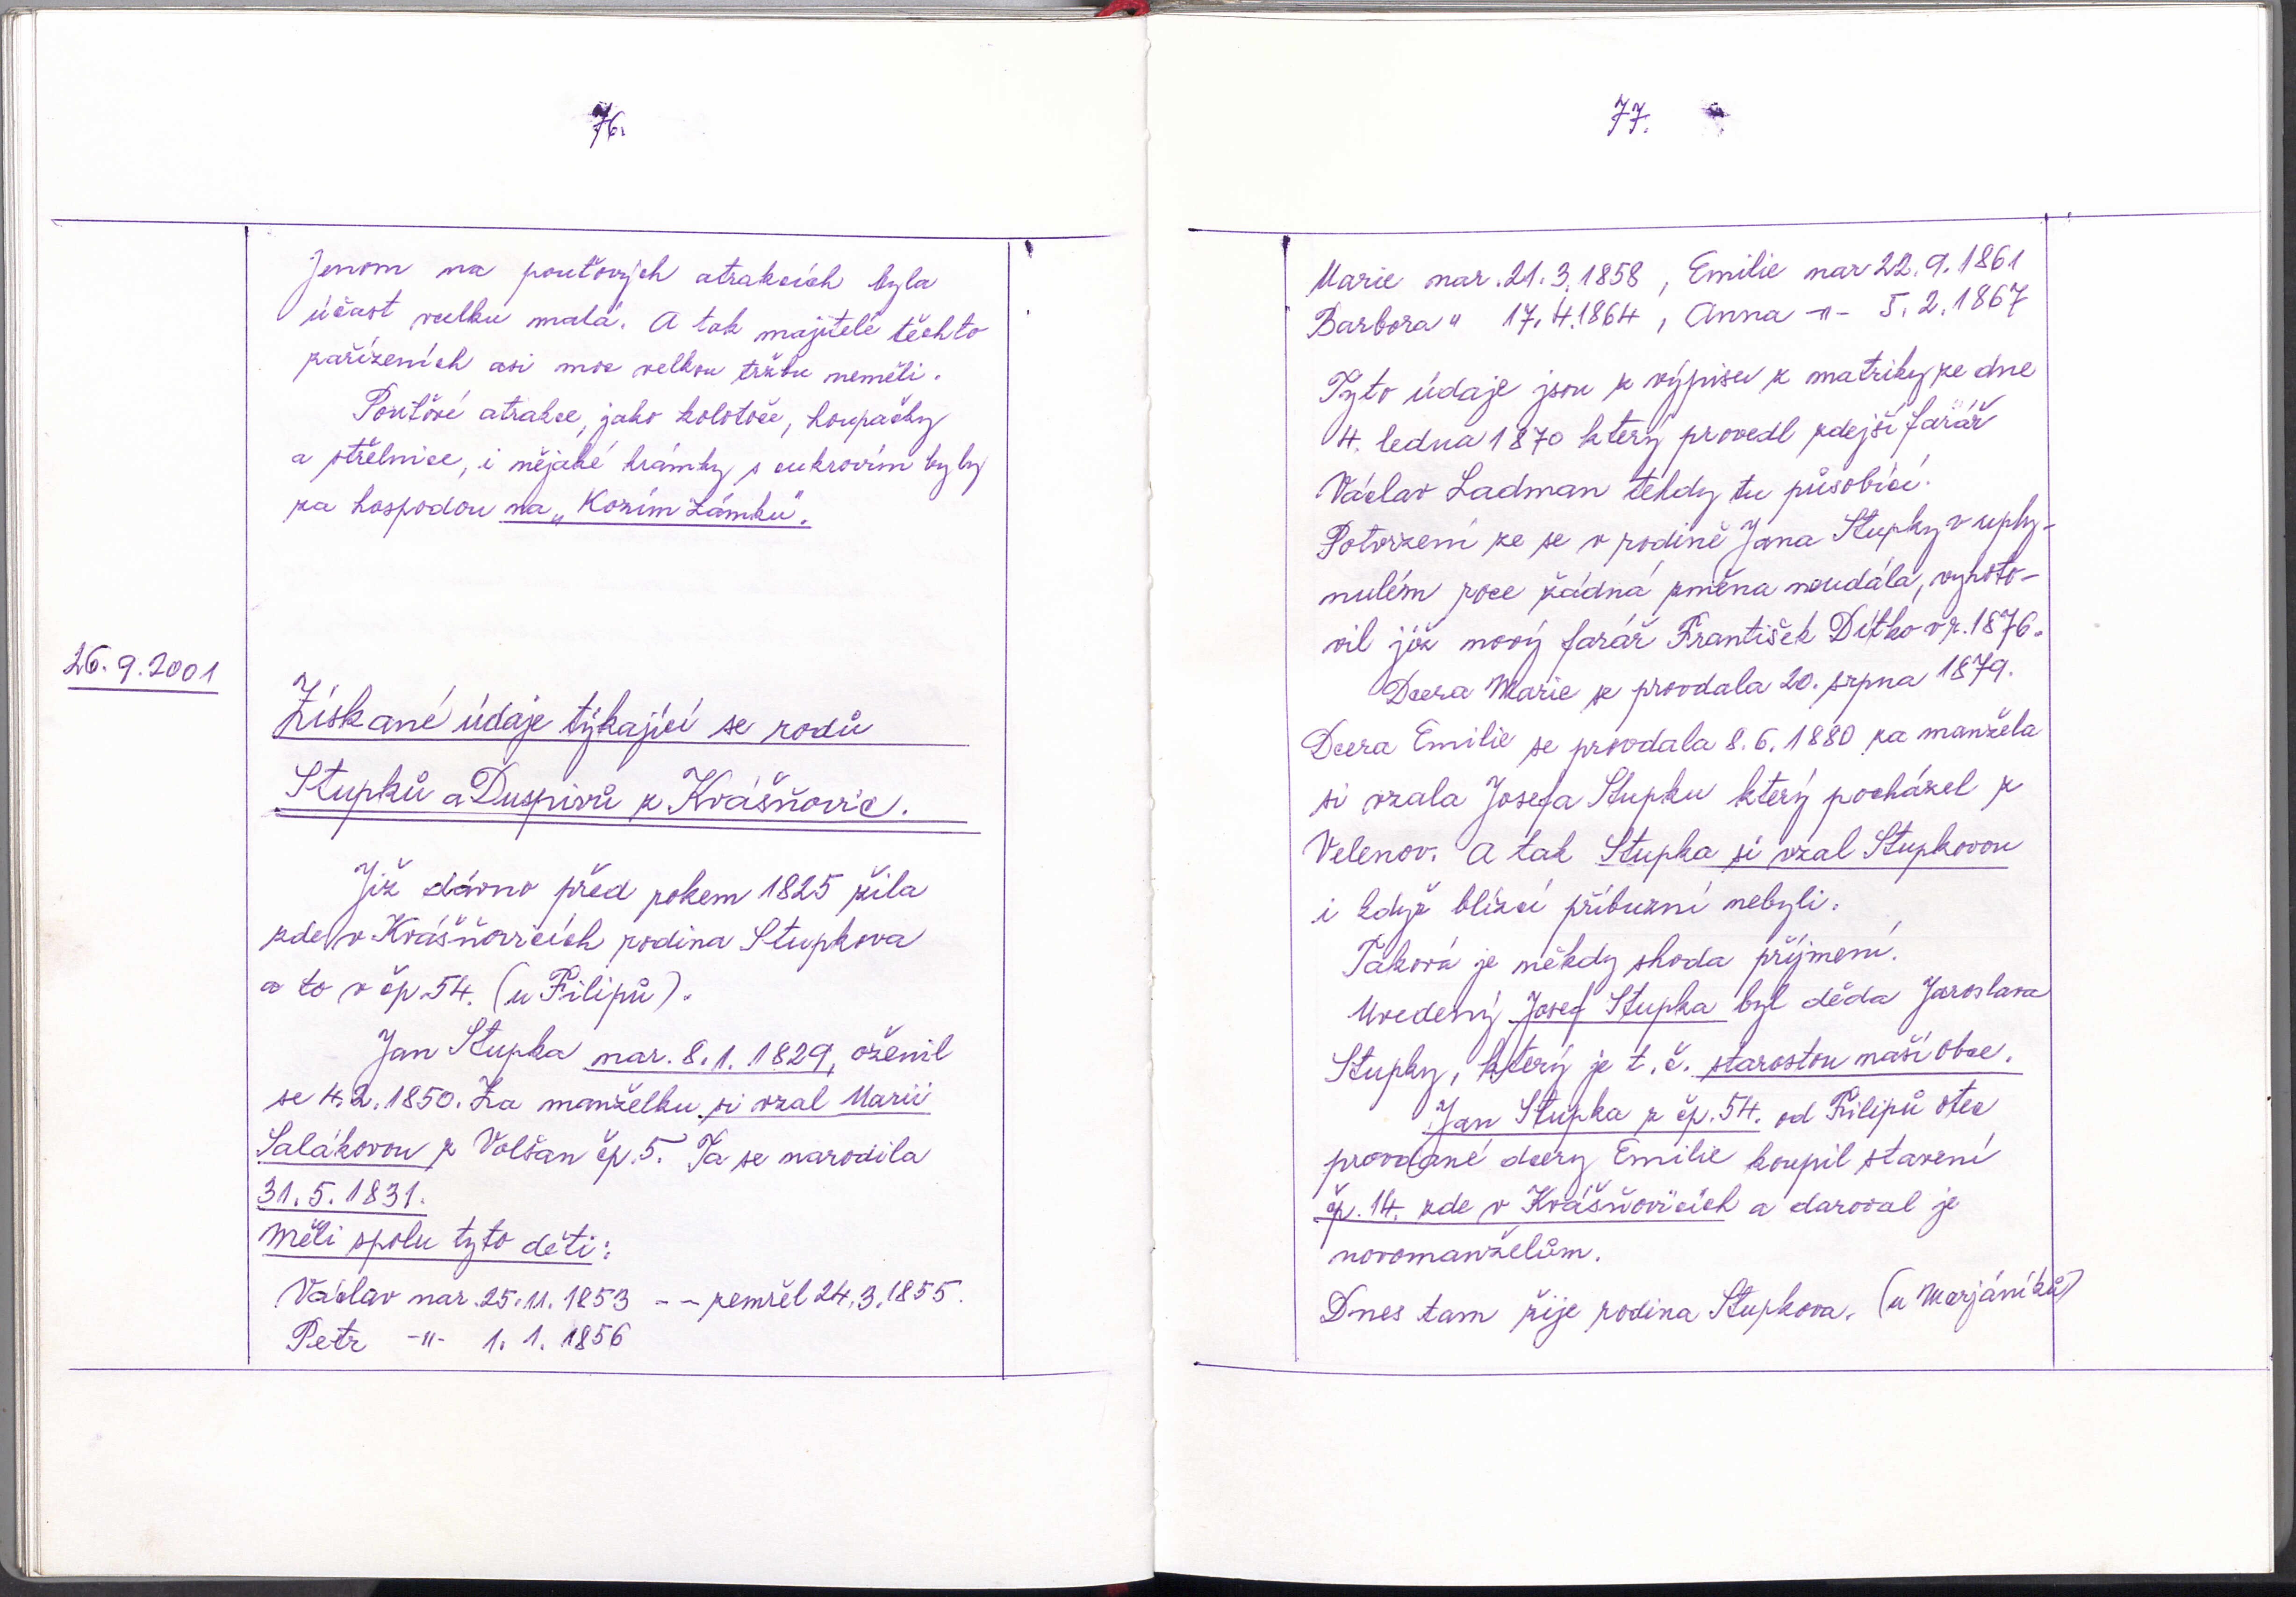 76.
Jenom na pouťových atrakcích byla
účast vcelku malá. A tak majitelé těchto
zařízeních asi moc velkou tržbu neměli.
Pouťové atrakce, jako kolotoče, houpačky
a střelnice, i nějaké krámky s cukrovím byly
za hospodou na „Kozím Zámku".
26.9.2001
Získané údaje týkající se rodů
Stupků a Duspivů z Kvášňovic.
Již dávno před rokem 1825 žila
zde v Kvášňovicích rodina Stupkova
a to v čp. 54. (u Filipů).
Jan Stupka nar. 8.1.1829, oženil
se 4.2.1850. Za manželku si vzal Marii
Salákovou z Volšan čp. 5. Ta se narodila
31.5.1831.
Měli spolu tyto děti:
Václav nar. 25.11.1853 -- zemřel 24.3.1855.
Petr -"- 1.1.1856
77.
Marie nar. 21.3.1858, Emilie nar 22.9.1861
Barbora " 17.4.1864, Anna -"- 5.2.1867
Tyto údaje jsou z výpisu z matriky ze dne
4. ledna 1870 který provedl zdejší farář
Václav Ladman téhdy tu působící.
Potvrzení že se v rodině Jana Stupky v uply-
nulém roce žádná změna neudála, vyhoto-
vil již nový farář František Ditko v r. 1876.
Dcera Marie se provdala 20. srpna 1879.
Dcera Emilie se provdala 8.6.1880 za manžela
si vzala Josefa Stupku který pocházel z
Velenov. A tak Stupka si vzal Stupkovou
i když blízcí příbuzní nebyli.
Taková je někdy shoda příjmení.
Uvedený Josef Stupka byl děda Jaroslava
Stupky, který je t.č. starostou naší obce.
Jan Stupka z čp. 54. od Filipů otec
provdané dcery Emilie koupil stavení
čp. 14. zde v Kvášňovicích a daroval je
novomanželům.
Dnes tam žije rodina Stupkova. (u Marjáníků)